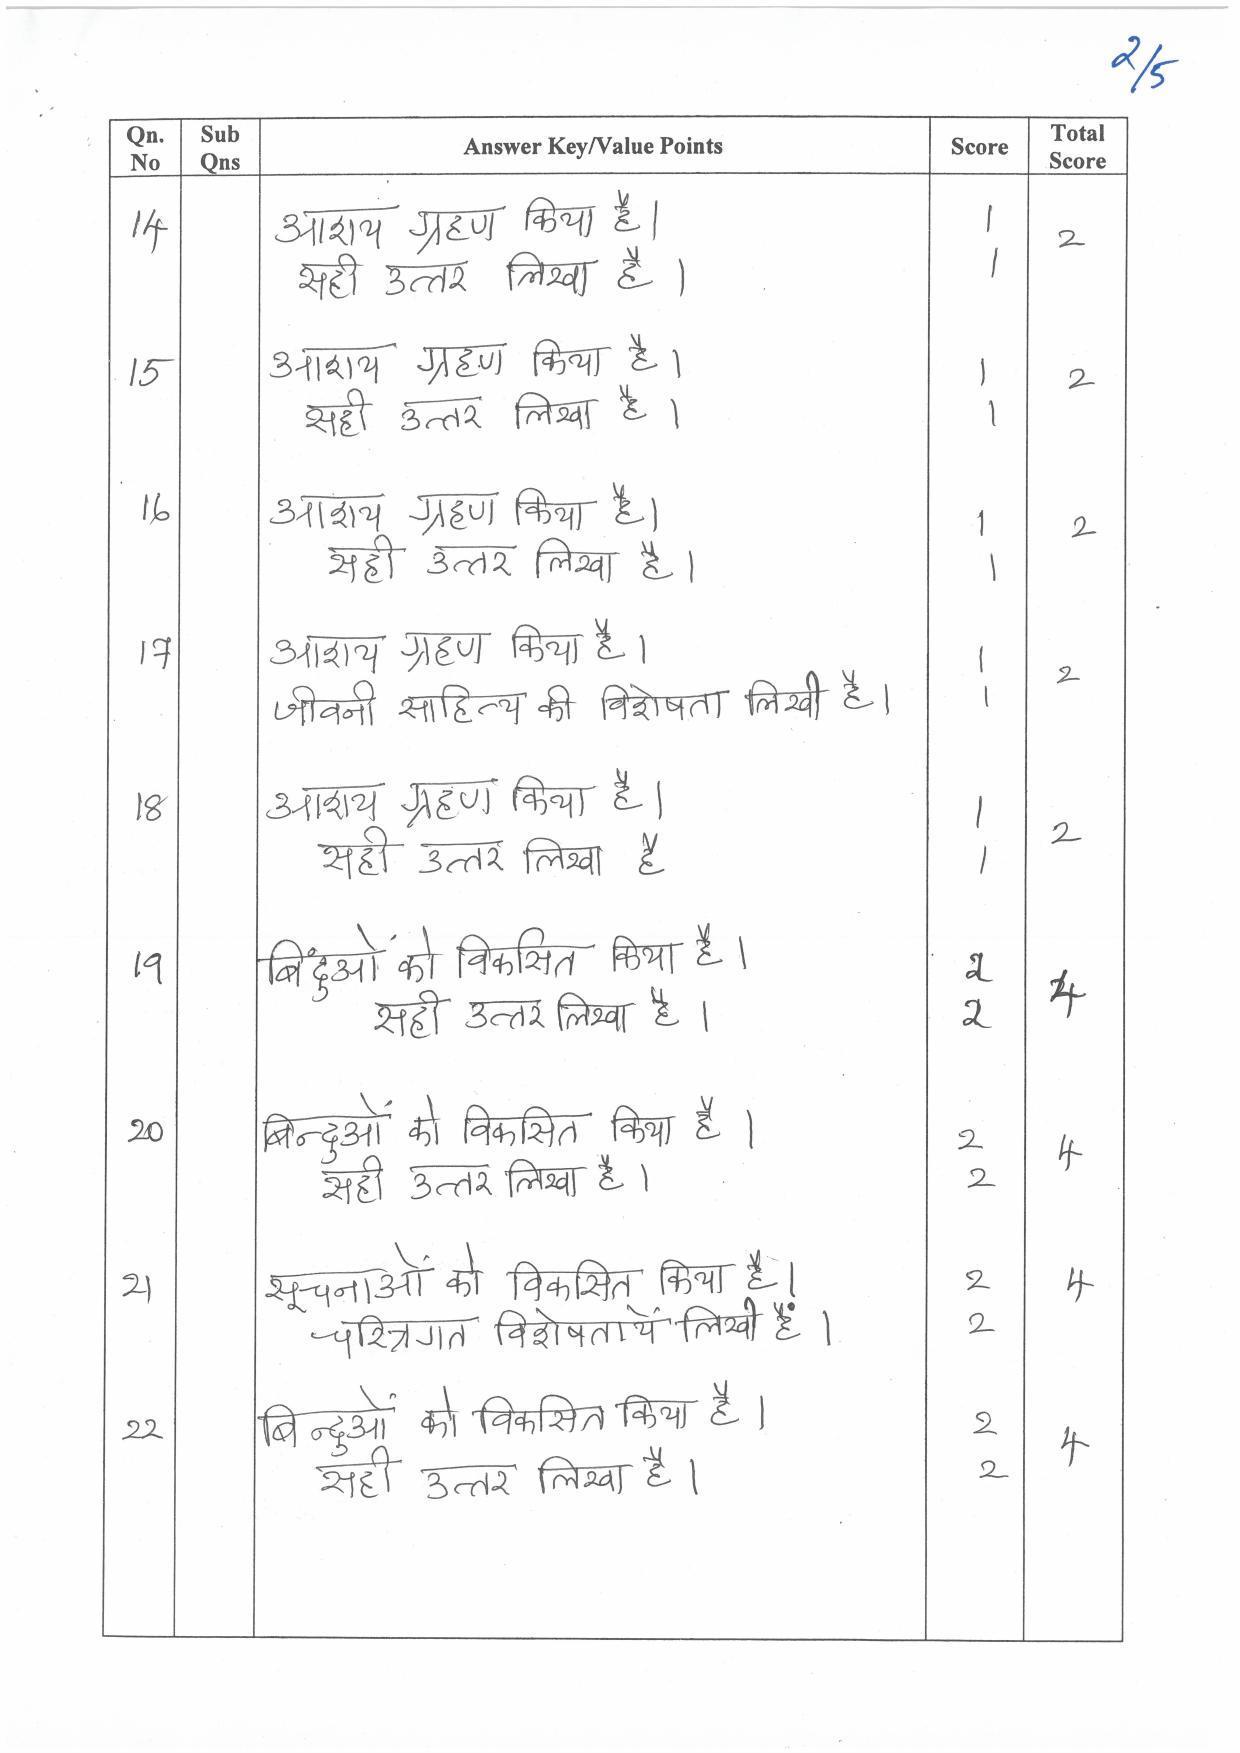 2/5
Qn. No Sub Qns Answer Key/Value Points Score Total Score
14 आशय ग्रहण किया है। 1 2
सही उत्तर लिखा है। 1
15 आशय ग्रहण किया है। 1 2
सही उत्तर लिखा है। 1
16 आशय ग्रहण किया है। 1 2
सही उत्तर लिखा है। 1
17 आशय ग्रहण किया है। 1 2
जीवनी साहित्य की विशेषता लिखी है। 1
18 आशय ग्रहण किया है। 1 2
सही उत्तर लिखा है 1
19 बिंदुओं को विकसित किया है। 2 4
सही उत्तर लिखा है। 2
20 बिन्दुओं को विकसित किया है। 2 4
सही उत्तर लिखा है। 2
21 सूचनाओं को विकसित किया है। 2 4
चरित्रगत विशेषतायें लिखी हैं। 2
22 बिन्दुओं को विकसित किया है। 2 4
सही उत्तर लिखा है। 2